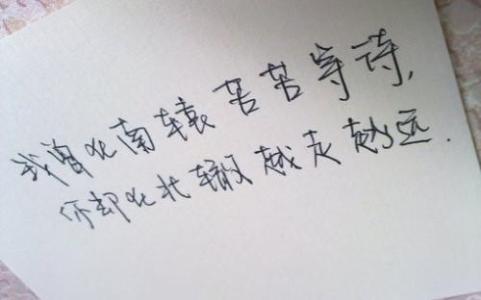 我曾化南辕苦苦等待,
你却化北辙越走越远.